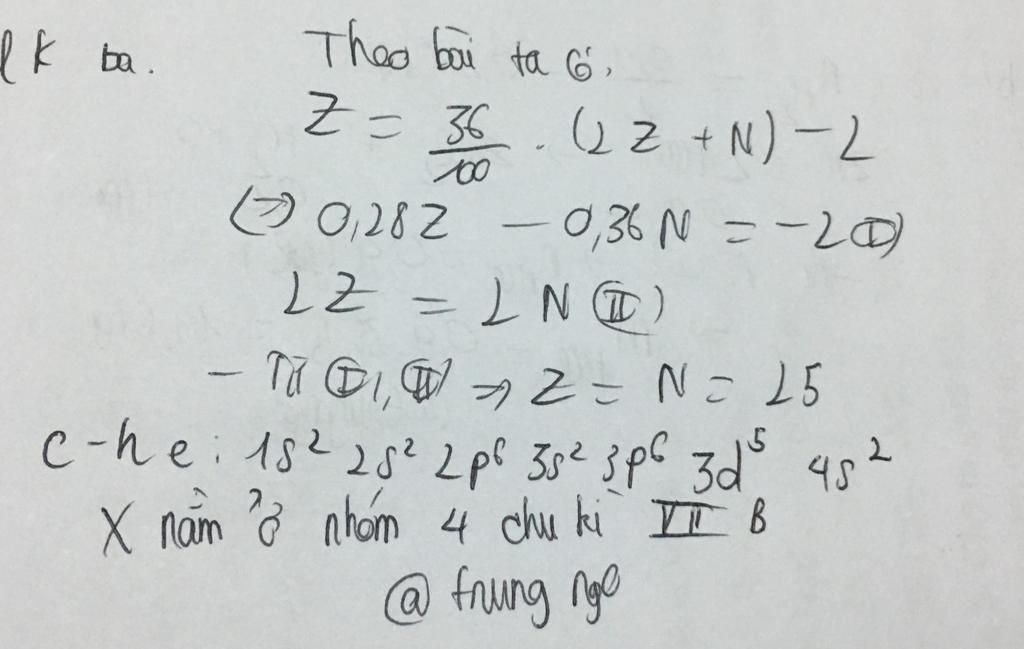 lk ba. Theo bài ta có,
Z = 36/100 . (2Z + N) - 2
(=> 0,28Z - 0,36N = -2 (I)
2Z = 2N (II)
- Từ (I), (II) => Z = N = 25
c-h e: 1s² 2s² 2p⁶ 3s² 3p⁶ 3d⁵ 4s²
X nằm ở nhóm 4 chu kì VII B
@ trung ngo